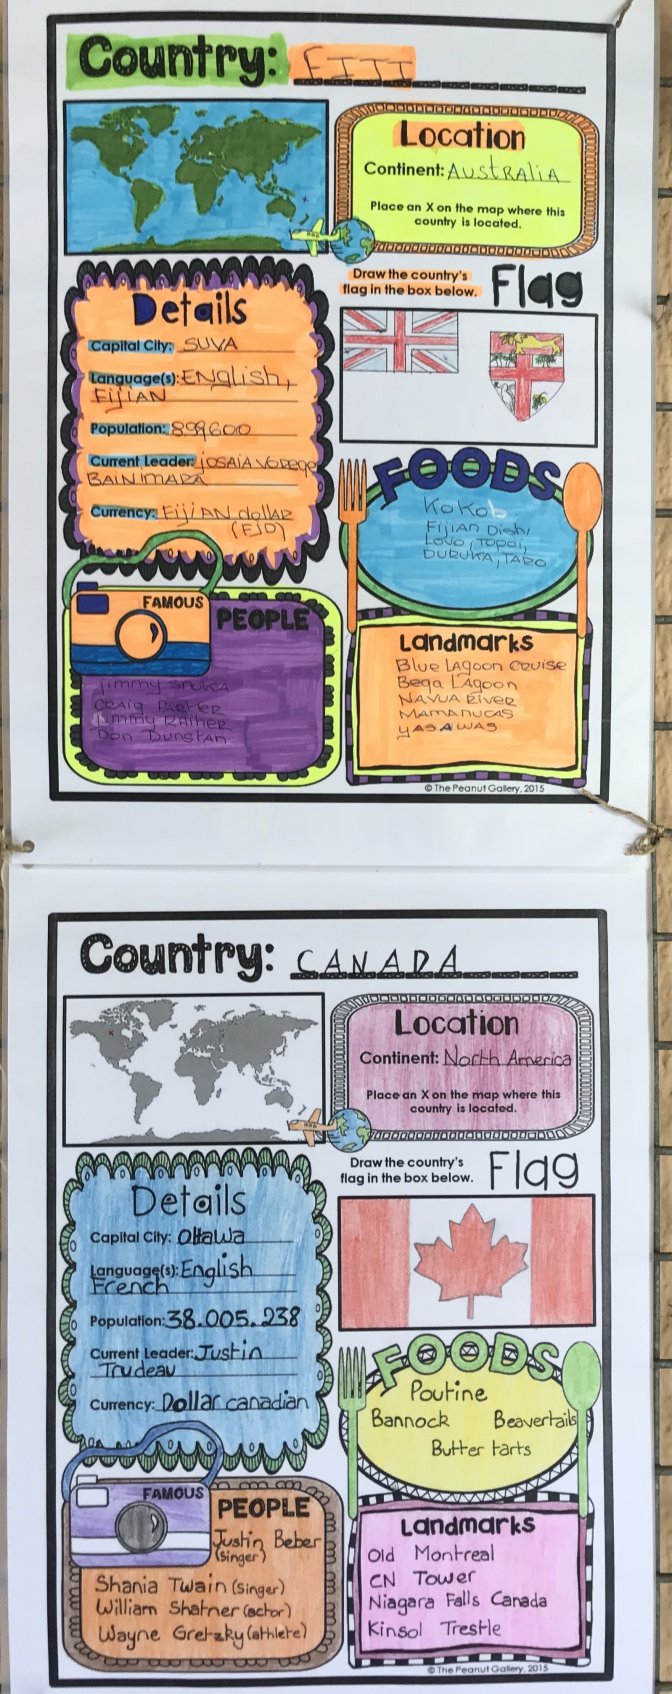 Country: FIJI
Location
Continent: AUSTRALIA
Place an X on the map where this
country is located.
Draw the country's
flag in the box below.
Flag
Details
Capital City: SUVA
Language(s): ENglish,
FijIAN
Population: 899600
Current Leader: jOSAIA VOREQE
BAINIMARA
Currency: FijiAN dollar
(FJD)
FOODS
Koko
FIJIAN Dish,
LOVO, TOPOI,
DURUKA, TARO
FAMOUS
PEOPLE
Jimmy SNUKA
CRAIG PARKER
Jimmy
Don Dunstan
Landmarks
Blue LAgoon cruise
Beqa LAgoon
NAVUA River
MAMANUCAS
yASAWAS
© The Peanut Gallery, 2015
Country: CANADA
Location
Continent: North America
Place an X on the map where this
country is located.
Draw the country's
flag in the box below.
Flag
Details
Capital City: Ottawa
Language(s): English
French
Population: 38.005.238
Current Leader: Justin
Trudeau
Currency: Dollar canadian
FOODS
Poutine
Bannock Beavertails
Butter tarts
FAMOUS
PEOPLE
Justin Beber
(singer)
Shania Twain (singer)
William Shatner (actor)
Wayne Gretzky (athlete)
Landmarks
Old Montreal
CN Tower
Niagara Falls Canada
Kinsol Trestle
© The Peanut Gallery, 2015